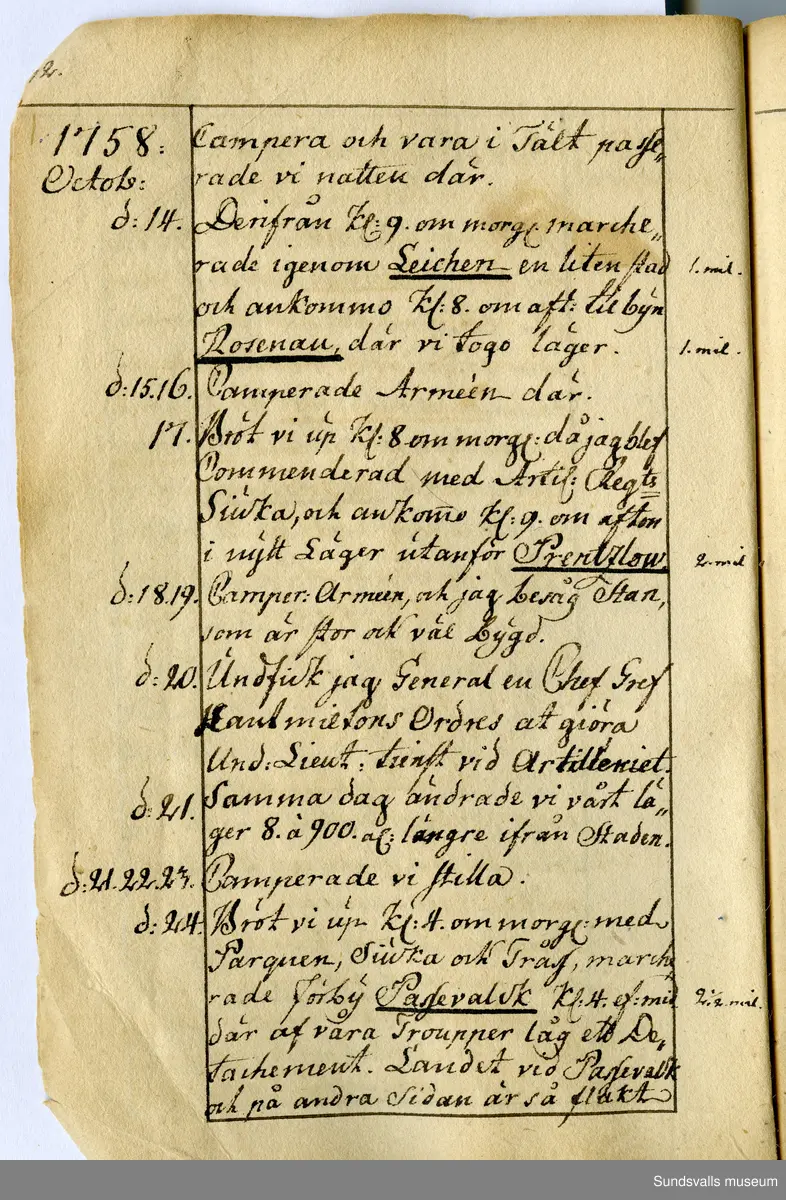 2.
1758: Campera och vara i Tält passe„
Octob: rade vi natten där.
d: 14. Derifrån Kl: 9. om morg: marche„
rade igenom Leichen en liten stad 1. mil.
och ankommo Kl: 8. om aft: til byn
Rosenau, där vi togo läger. 1. mil.
d: 15.16. Camperade Arméen där.
17. Bröt vi up Kl: 8 om morg: då jag blef
Commenderad med Artil: Regts
Siuka, och ankom̅o Kl: 9. om afton
i nytt Läger utanför Prentzlow. 2. mil.
d: 18.19. Camper: Arméen, och jag besåg Stan,
som är stor och väl bygd.
d: 20. Undfick jag General en Chef Gref
Hamiltons Ordres at giöra
Und: Lieut: tienst vid Artilleriet.
d: 21. Samma dag ändrade vi vårt lä„
ger 8. à 900. al: längre ifrån Staden.
d: 21.22.23. Camperade vi stilla.
d: 24. Bröt vi up Kl: 4. om morg: med
Parquen, Siuka och Tråss, marche„
rade förby Passevalck Kl: 4. ef: mid 2½ mil.
där af våra Troupper låg ett De„
tachement. Landet vid Passevalk
och på andra Sidan är så flakt
Sundsvalls museum